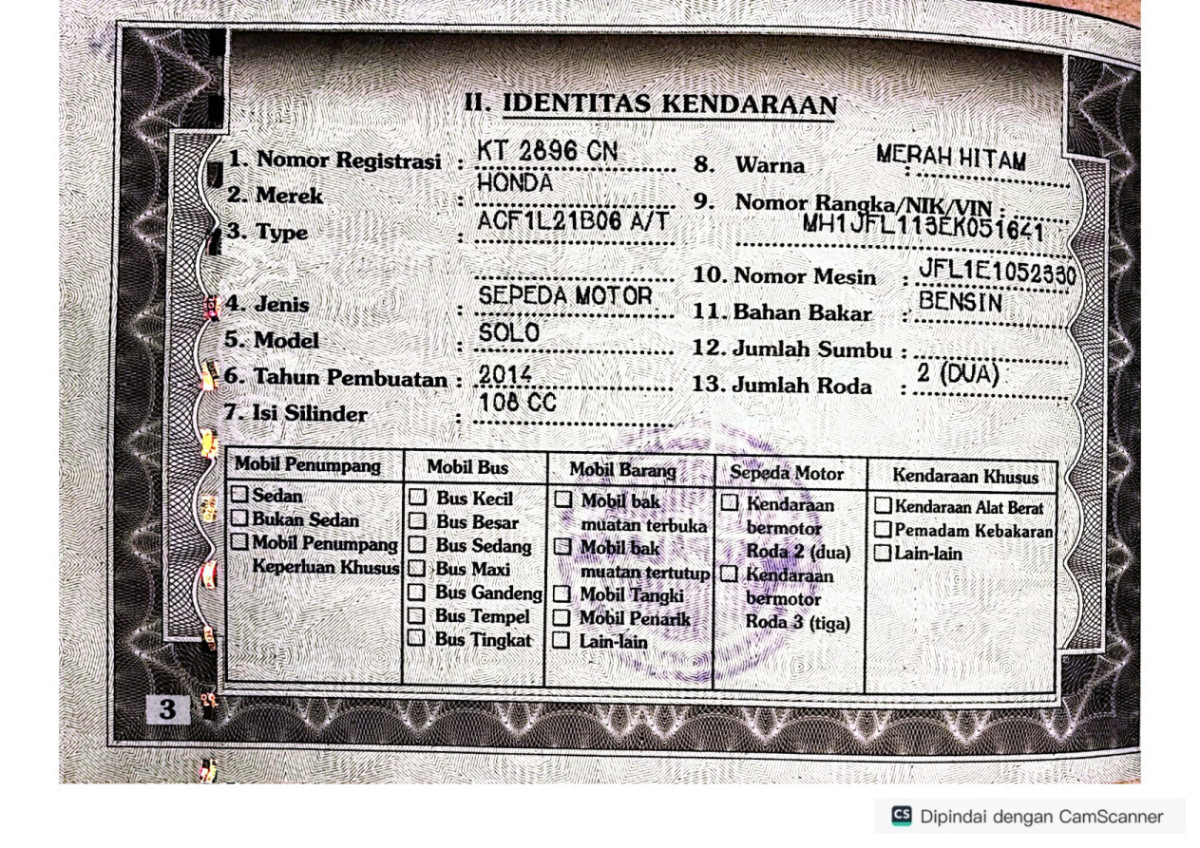 II. IDENTITAS KENDARAAN
1. Nomor Registrasi : KT 2896 CN
2. Merek : HONDA
3. Type : ACF1L21B06 A/T
4. Jenis : SEPEDA MOTOR
5. Model : SOLO
6. Tahun Pembuatan : 2014
7. Isi Silinder : 108 CC
8. Warna : MERAH HITAM
9. Nomor Rangka/NIK/VIN :
MH1JFL113EK051641
10. Nomor Mesin : JFL1E1052330
11. Bahan Bakar : BENSIN
12. Jumlah Sumbu :
13. Jumlah Roda : 2 (DUA)
Mobil Penumpang
Sedan
Bukan Sedan
Mobil Penumpang
Keperluan Khusus
Mobil Bus
Bus Kecil
Bus Besar
Bus Sedang
Bus Maxi
Bus Gandeng
Bus Tempel
Bus Tingkat
Mobil Barang
Mobil bak
muatan terbuka
Mobil bak
muatan tertutup
Mobil Tangki
Mobil Penarik
Lain-lain
Sepeda Motor
Kendaraan
bermotor
Roda 2 (dua)
Kendaraan
bermotor
Roda 3 (tiga)
Kendaraan Khusus
Kendaraan Alat Berat
Pemadam Kebakaran
Lain-lain
3
CS Dipindai dengan CamScanner